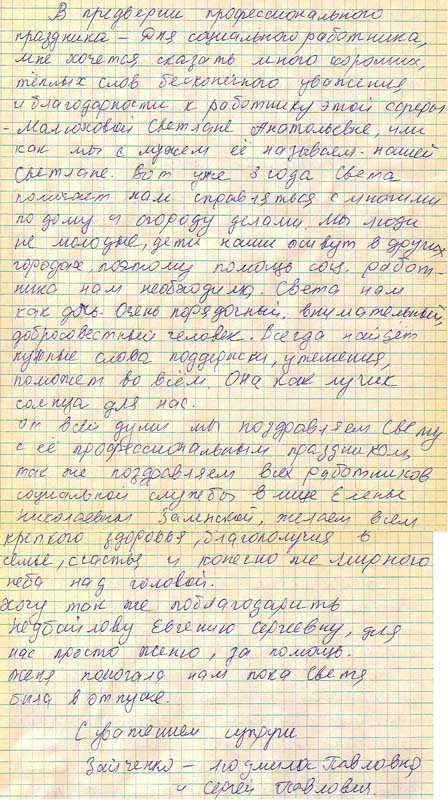 В предверии профессионального
праздника – Дня социального работника,
мне хочется сказать много хороших,
тёплых слов бесконечного уважения
и благодарности к работнику этой сферы
- Малюковой Светлане Анатольевне, или
как мы с мужем её называем - нашей
Светлане. Вот уже 3 года Света
помогает нам справляться с многими
по дому и огороду делами. Мы люди
не молодые, дети наши живут в других
городах, поэтому помощь соц. работ-
ника нам необходима. Света нам
как дочь. Очень порядочный, внимательный,
добросовестный человек. Всегда найдет
нужные слова поддержки, утешения,
поможет во всём. Она как лучик
солнца для нас.
От всей души мы поздравляем Свету
с её профессиональным праздником,
так же поздравляем всех работников
социальной службы в лице Елены
Николаевны Заленской, желаем всем
крепкого здоровья, благополучия в
семье, счастья и конечно же мирного
неба над головой.
Хочу так же поблагодарить
Недбайлову Евгению Сергеевну, для
нас просто Женю, за помощь.
Женя помогала нам пока Света
была в отпуске.
С уважением супруги
Зайченко – Людмила Павловна
и Сергей Павлович.